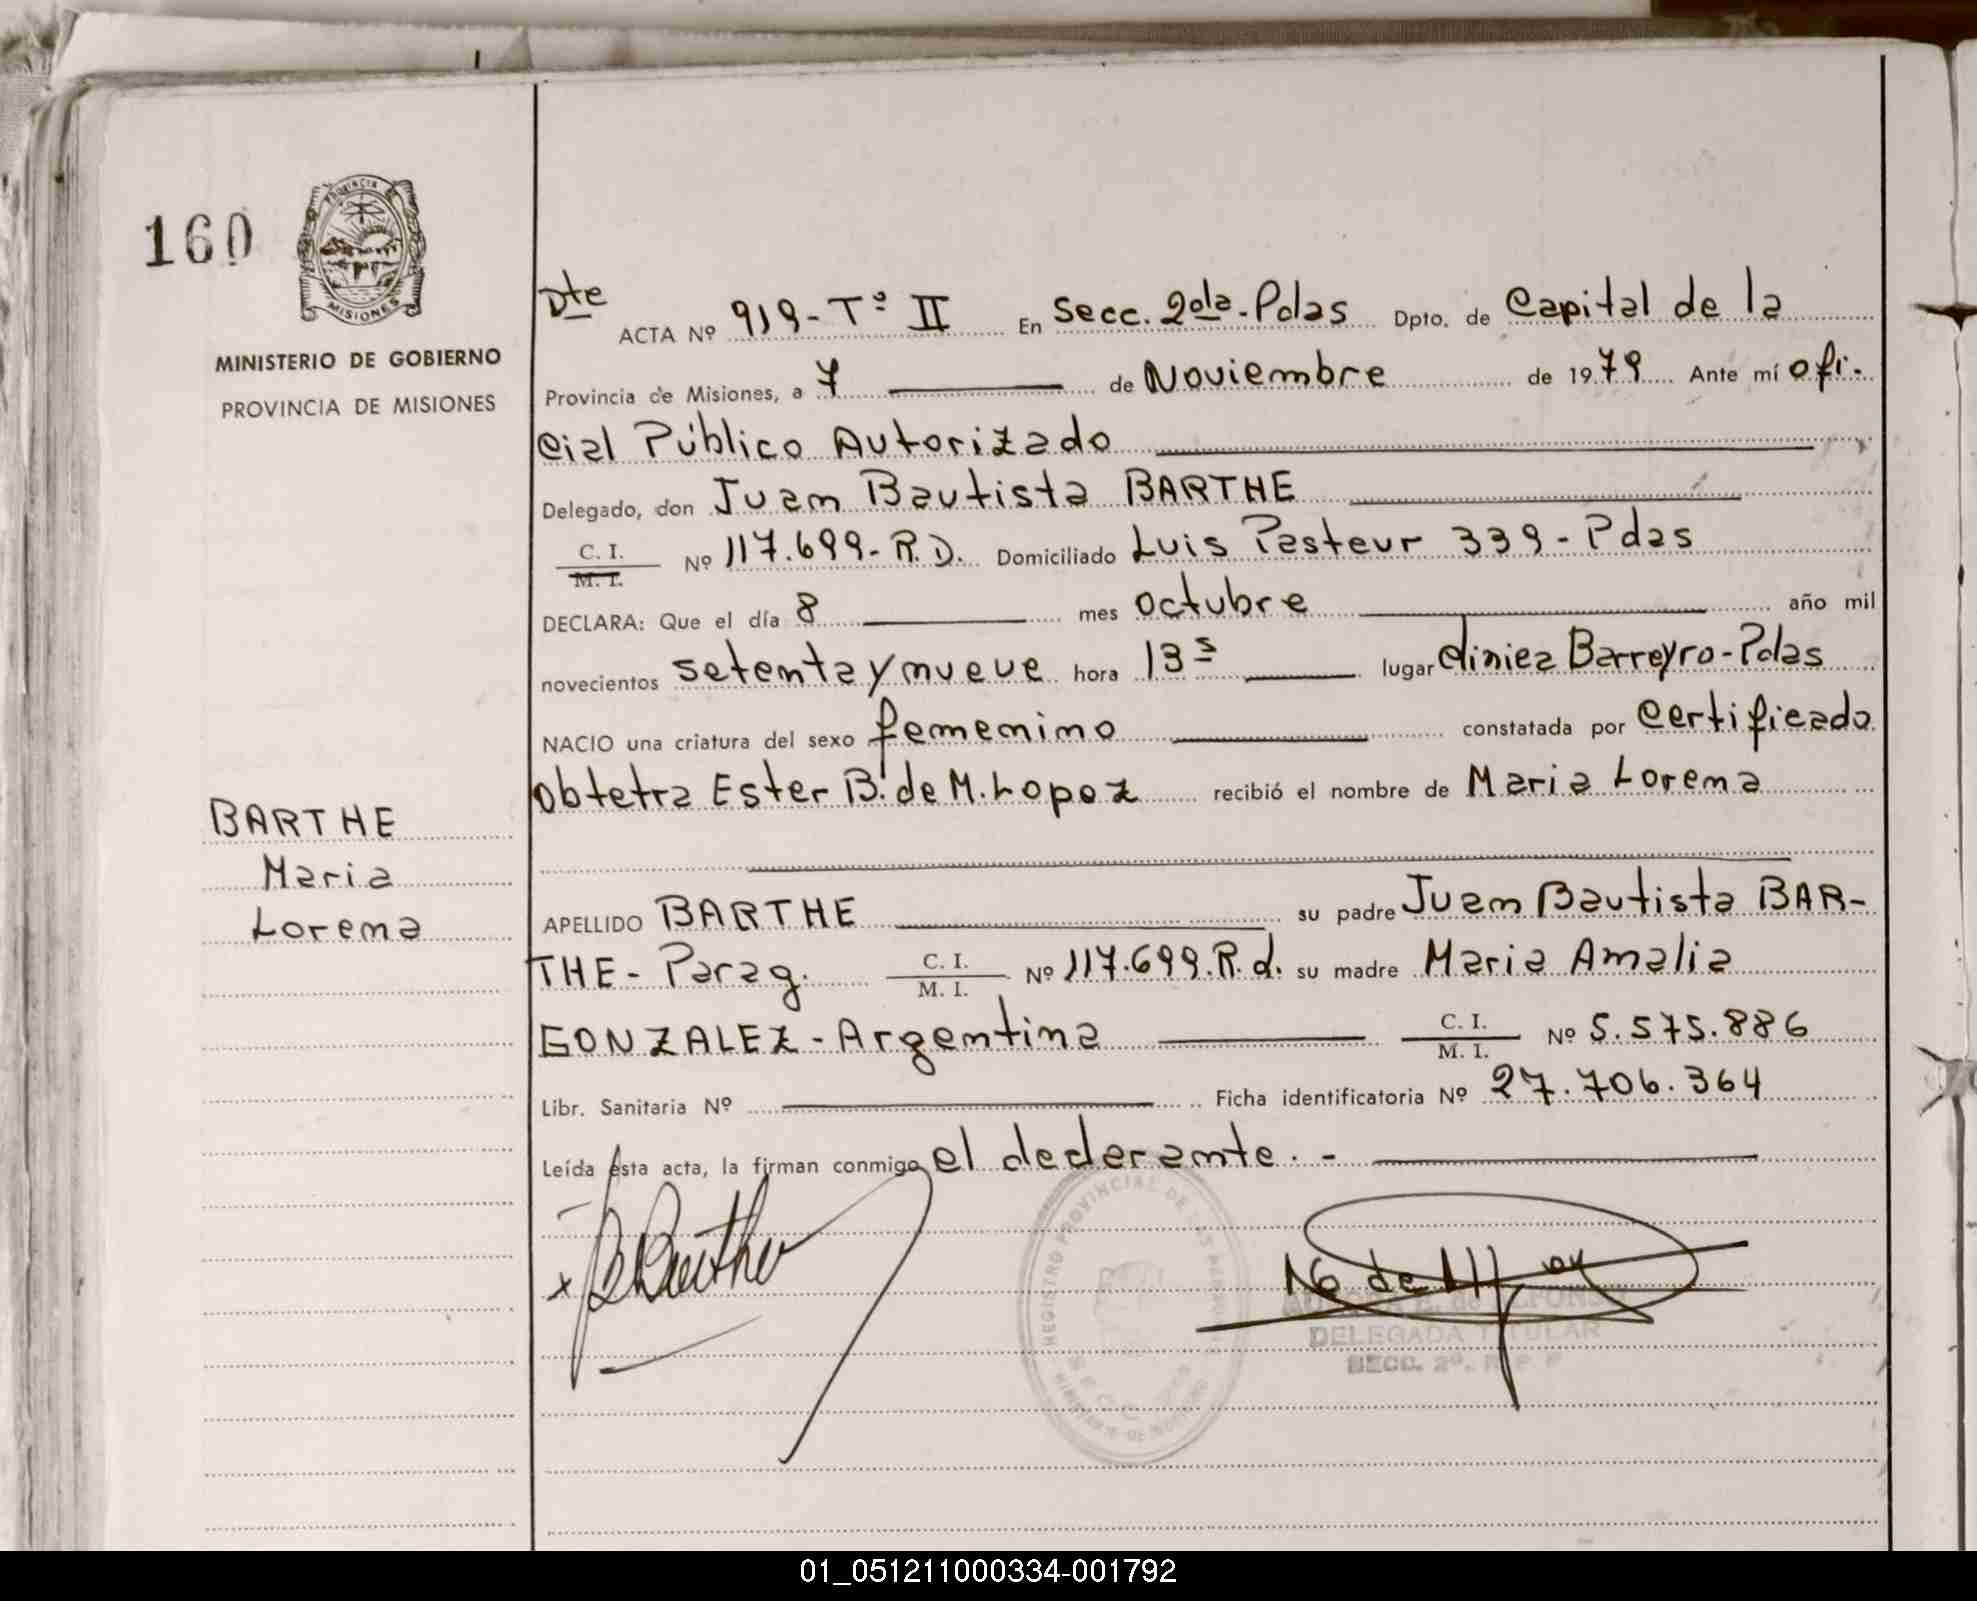 160
PROVINCIA DE
MISIONES
MINISTERIO DE GOBIERNO
PROVINCIA DE MISIONES
BARTHE
Maria
Lorena
Dte
ACTA Nº 919-Tº II En Secc. 2da-Pdas Dpto. de Capital de la
Provincia de Misiones, a 7 de Noviembre de 1979 Ante mí ofi-
cial Público Autorizado
Delegado, don Juan Bautista BARTHE
C. I.
M. I. Nº 117.699-R.D. Domiciliado Luis Pasteur 339-Pdas
DECLARA: Que el día 8 mes octubre año mil
novecientos setenta y nueve hora 13s lugar Clinica Barreyro-Pdas
NACIO una criatura del sexo femenino constatada por certificado
obtetra Ester B. de M. Lopez recibió el nombre de Maria Lorena
APELLIDO BARTHE su padre Juan Bautista BAR-
THE-Parag. C. I.
M. I. Nº 117.699.R.d. su madre Maria Amalia
GONZALEZ-Argentina C. I.
M. I. Nº 5.575.886
Libr. Sanitaria Nº Ficha identificatoria Nº 27.706.364
Leída esta acta, la firman conmigo el declarante.-
Barthe
REGISTRO PROVINCIAL DE LAS PERSONAS
DELEGADA TITULAR
SECC. 2ª. R P P
01_051211000334-001792